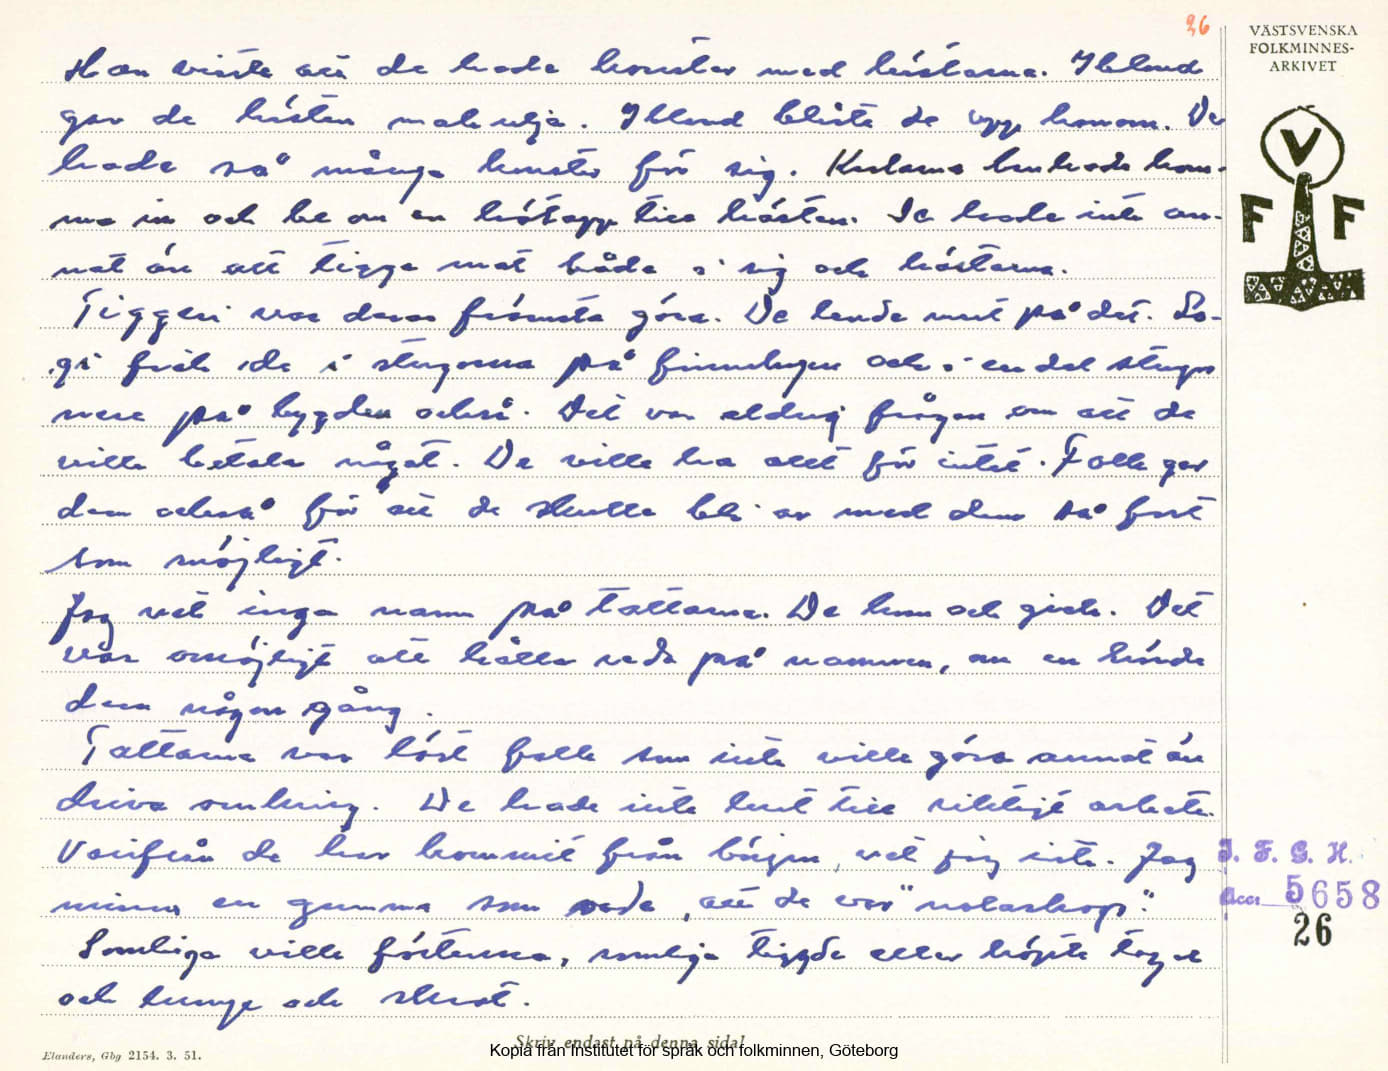 26
VÄSTSVENSKA
FOLKMINNES-
ARKIVET
V
F F
Han visste att de hade konster med hästarna. Ibland
gav de hästen
Ibland blåste de upp honom. De
hade så många konster för sig. Karlarna brukade kom-
ma in och be om en hötapp till hästen. De hade inte an-
nat än att tigga mat både åt sig och hästarna.
Tiggeri var deras främsta göra. De levde mest på det. Lo-
gi fick de i stugorna på finnskogen och i en del stugor
nere på bygden också. Det var aldrig frågan om att de
ville betala något. De ville ha allt för intet. Folk gav
dem också för att de skulle bli av med dem så fort
som möjligt.
Jag vet inga namn på tattarna. De kom och gick. Det
var omöjligt att hålla reda på namnen, om en hörde
dem någon gång.
Tattarna var löst folk som inte ville göra annat än
driva omkring. De hade inte lust till riktigt arbete.
Varifrån de har kommit från början, vet jag inte. Jag
minns en gumma som sade, att de var
Somliga ville förtenna, somliga tiggde eller köpte tagel
och lump och skrot.
J. F. G. H.
Acc. 5658
26
Skriv endast på denna sida!
Kopia från Institutet för språk och folkminnen, Göteborg
Elanders, Gbg 2154. 3. 51.